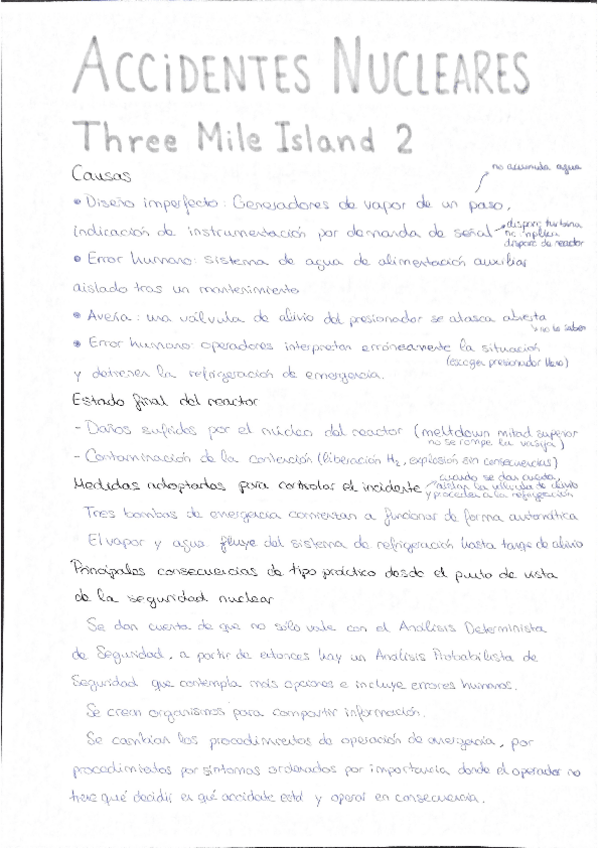 ACCIDENTES NUCLEARES
Three Mile Island 2
Causas
no acumula agua
• Diseño imperfecto: Generadores de vapor de un paso,
indicación de instrumentación por demanda de señal → disparo turbina
no implica
disparo de reactor
• Error humano: sistema de agua de alimentación auxiliar
aislado tras un mantenimiento
• Avería: una válvula de alivio del presionador se atasca abierta
↳ no lo saben
• Error humano: operadores interpretan erróneamente la situación
(escogen presionador lleno)
y detienen la refrigeración de emergencia.
Estado final del reactor
- Daños sufridos por el núcleo del reactor (meltdown mitad superior
no se rompe la vasija)
- Contaminación de la contención (liberación H2, explosión sin consecuencias)
Medidas adoptadas para controlar el incidente
cuando se dan cuenta,
aíslan la válvula de alivio
y proceden a la refrigeración
Tres bombas de emergencia comienzan a funcionar de forma automática
El vapor y agua fluye del sistema de refrigeración hasta tanque de alivio
Principales consecuencias de tipo práctico desde el punto de vista
de la seguridad nuclear
Se dan cuenta de que no sólo vale con el Análisis Determinista
de Seguridad, a partir de entonces hay un Análisis Probabilista de
Seguridad que contempla más opciones e incluye errores humanos.
Se crean organismos para compartir información.
Se cambian los procedimientos de operación de emergencia, por
procedimientos por síntomas ordenados por importancia donde el operador no
tiene qué decidir en qué accidente está y operar en consecuencia.